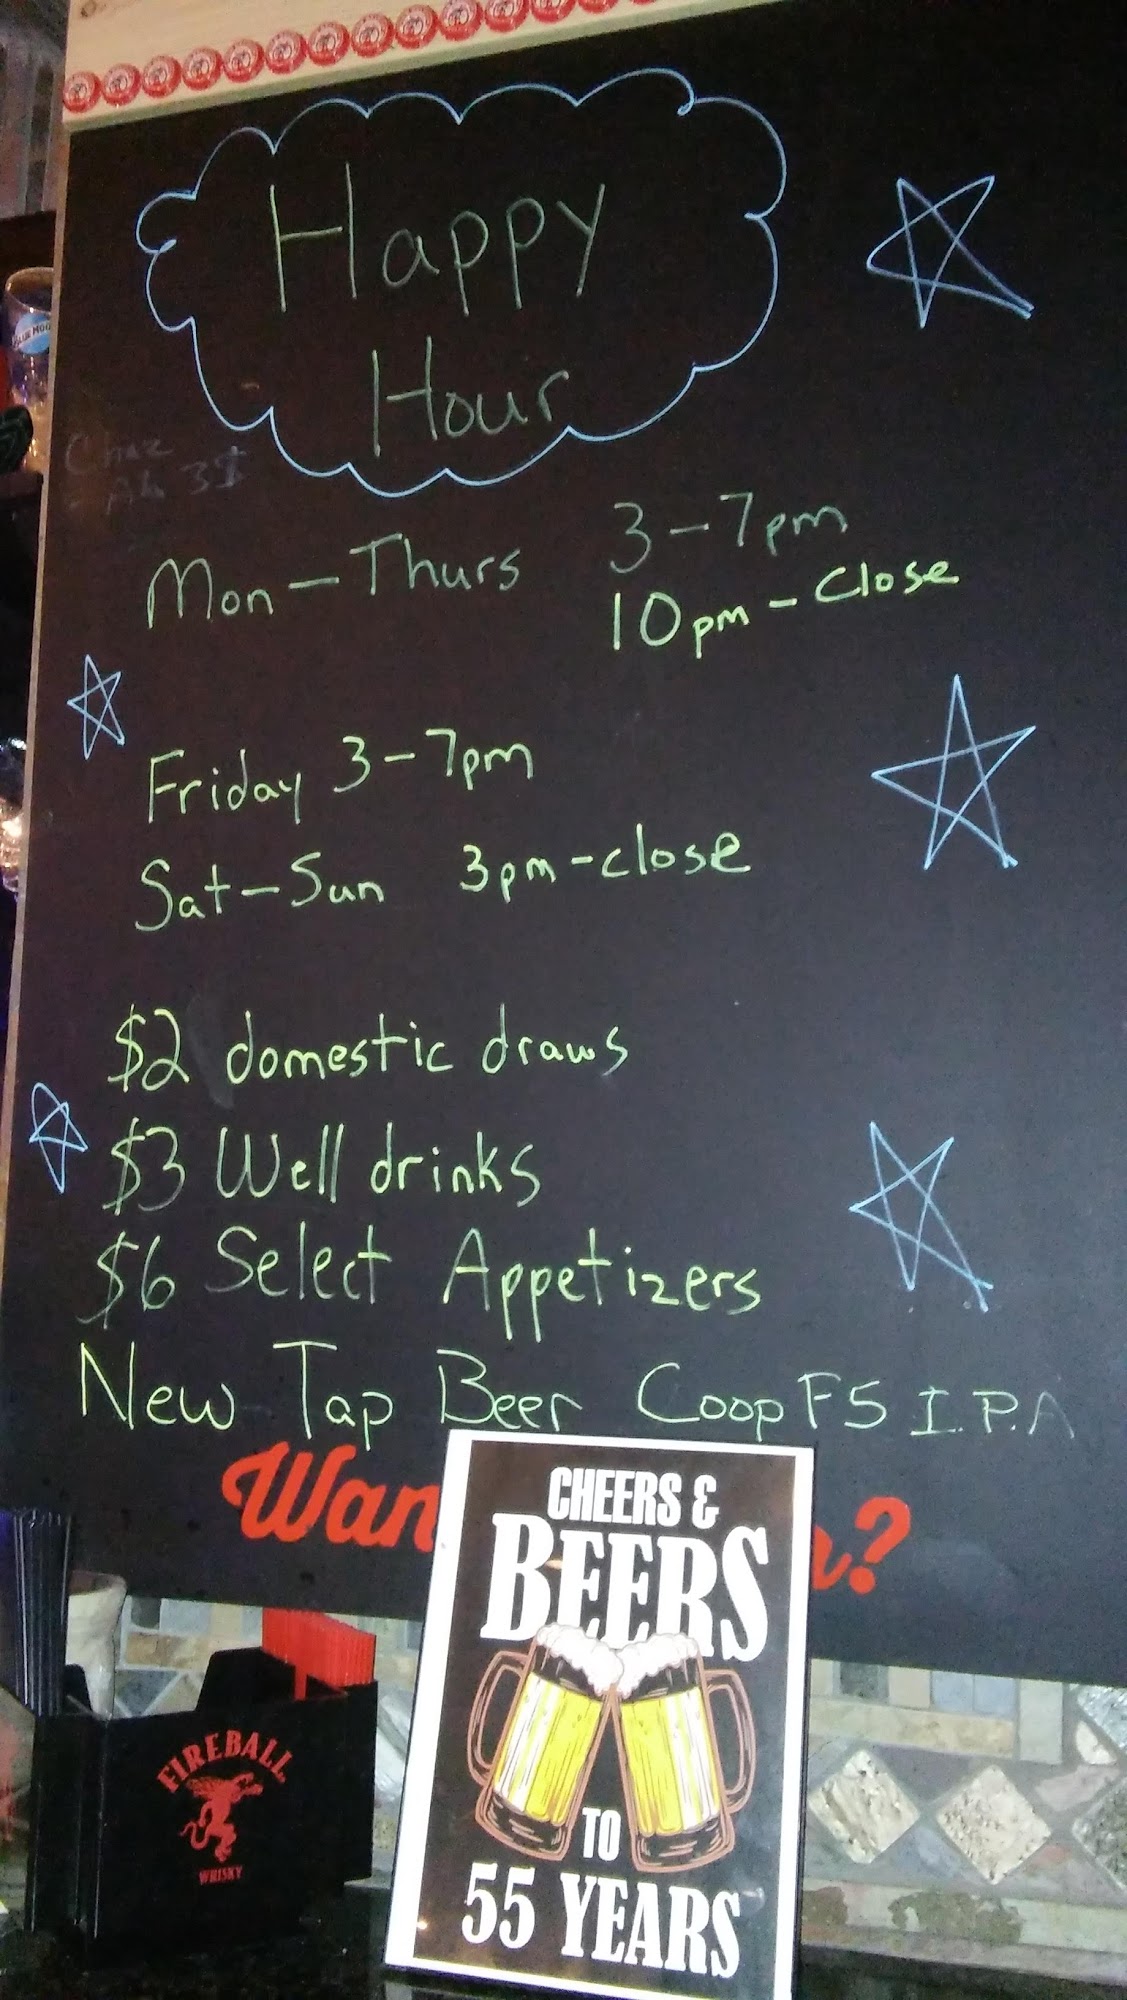 Happy
Hour
Mon-Thurs 3-7pm
10pm-Close
Friday 3-7pm
Sat-Sun 3pm-close
$2 domestic draws
$3 Well drinks
$6 Select Appetizers
New Tap Beer Coop F5 I.P.A
CHEERS &
BEERS
TO
55 YEARS
FIREBALL
WHISKY